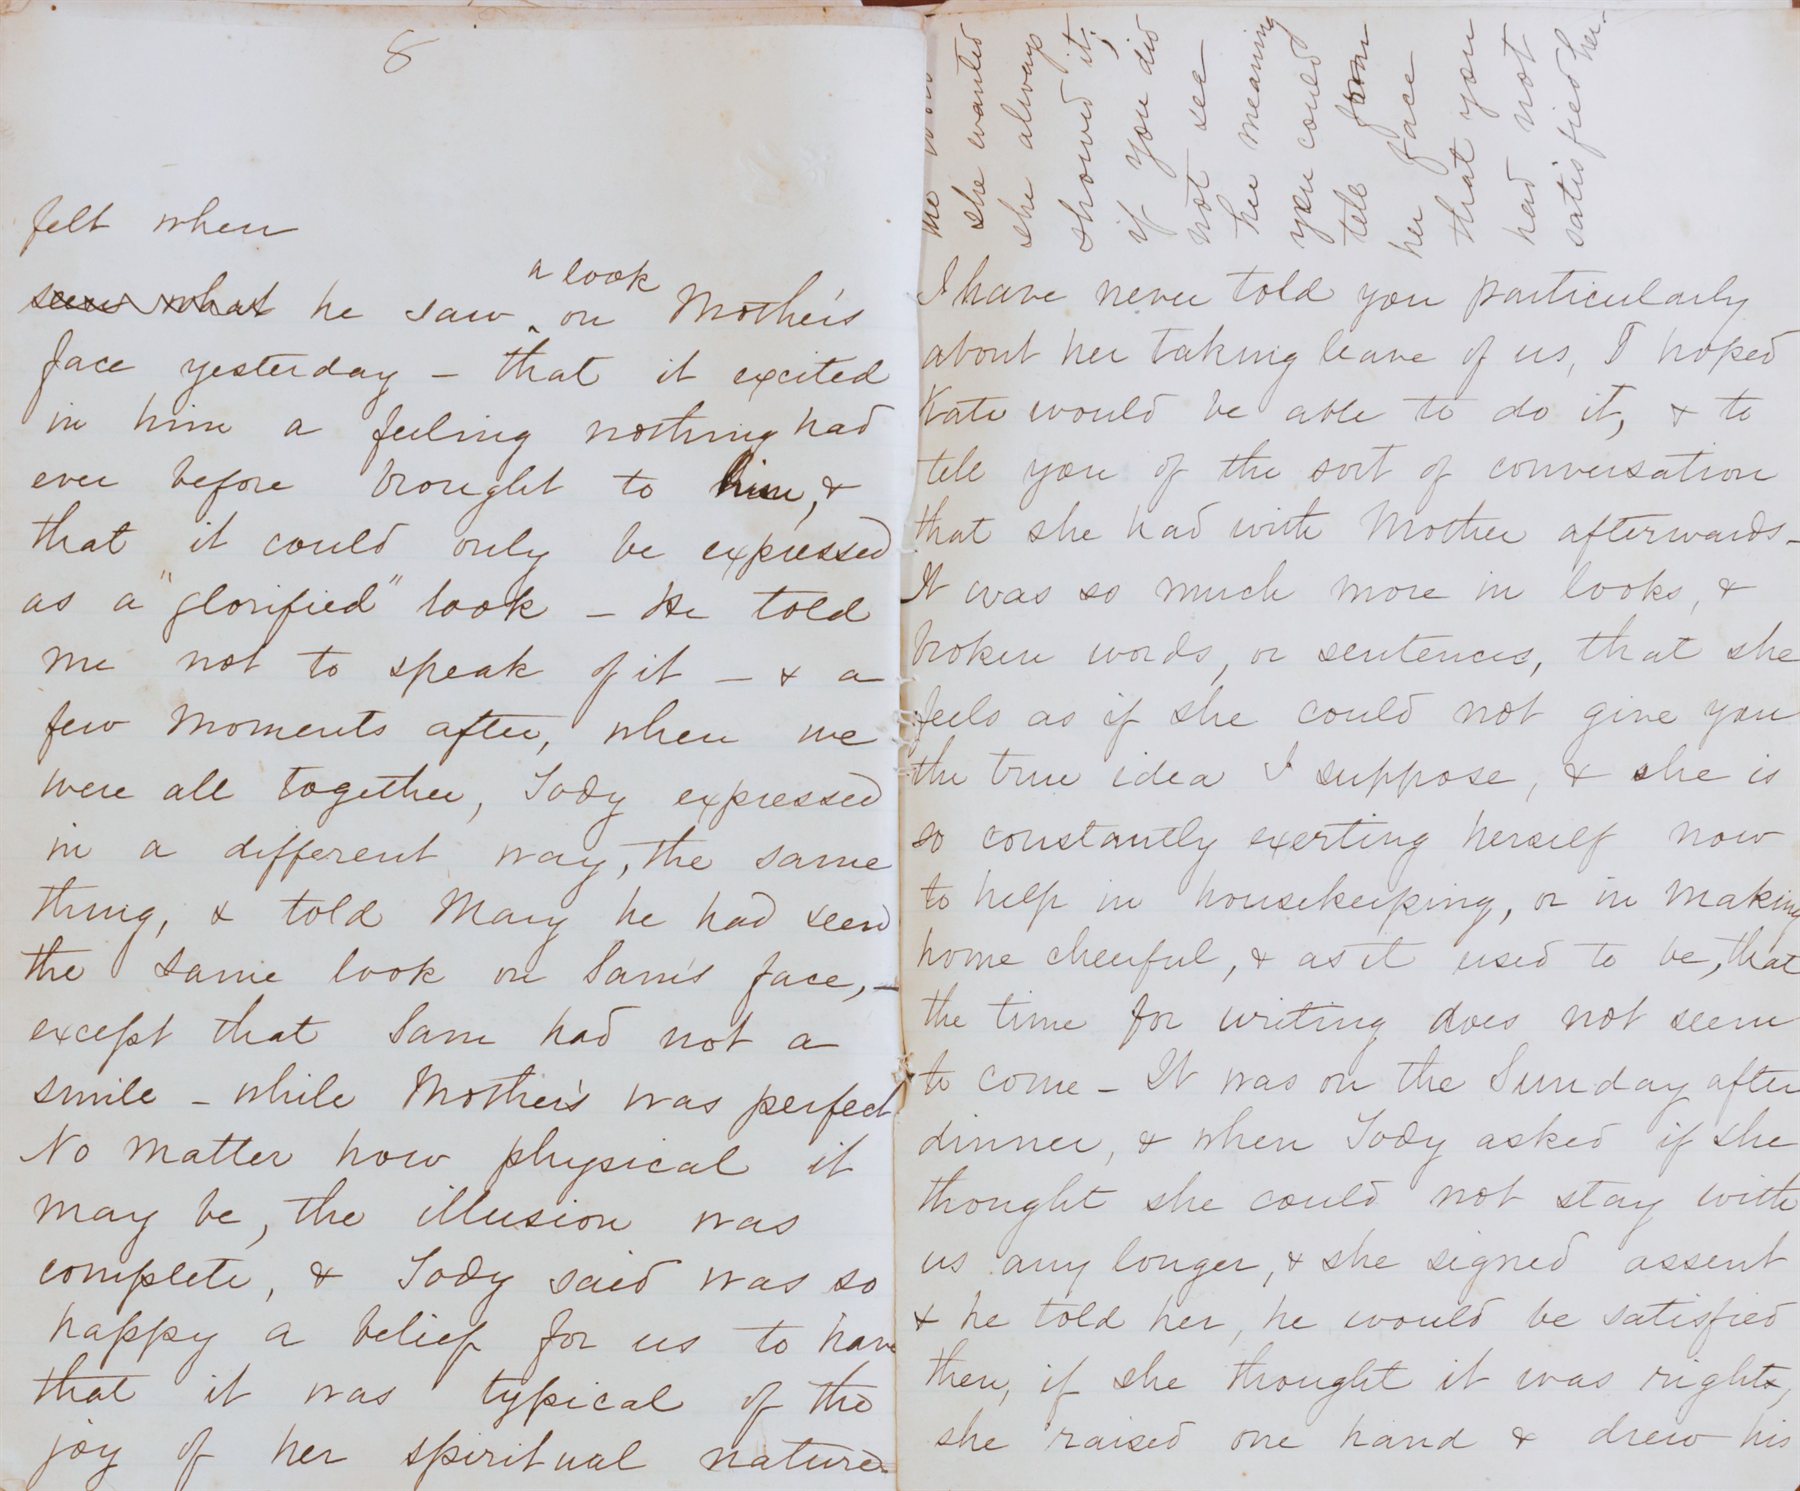 8
felt when
seen what he saw a look on Mother's
face yesterday – that it excited
in him a feeling nothing had
ever before brought to him, &
that it could only be expressed
as a "glorified" look – He told
me not to speak of it – & a
few moments after, when we
were all together, Tody expressed
in a different way, the same
thing, & told Mary he had seen
the same look on Sam's face, –
except that Sam had not a
smile – while Mother's was perfect
No matter how physical it
may be, the illusion was
complete, & Tody said was so
happy a belief for us to have
that it was typical of the
joy of her spiritual nature –
she wanted
she always
showed it;
if you did
not see
her meaning
you could
tell from
her face
that you
had not
satisfied her.
I have never told you particularly
about her taking leave of us, I hoped
Kate would be able to do it, & to
tell you of the sort of conversation
that she had with Mother afterwards –
It was so much more in looks, &
broken words, or sentences, that she
feels as if she could not give you
the true idea I suppose, & she is
so constantly exerting herself now
to help in housekeeping, or in making
home cheerful, & as it used to be, that
the time for writing does not seem
to come – It was on the Sunday after
dinner, & when Tody asked if she
thought she could not stay with
us any longer, & she signed assent
& he told her, he would be satisfied
then, if she thought it was right,
she raised one hand & drew his